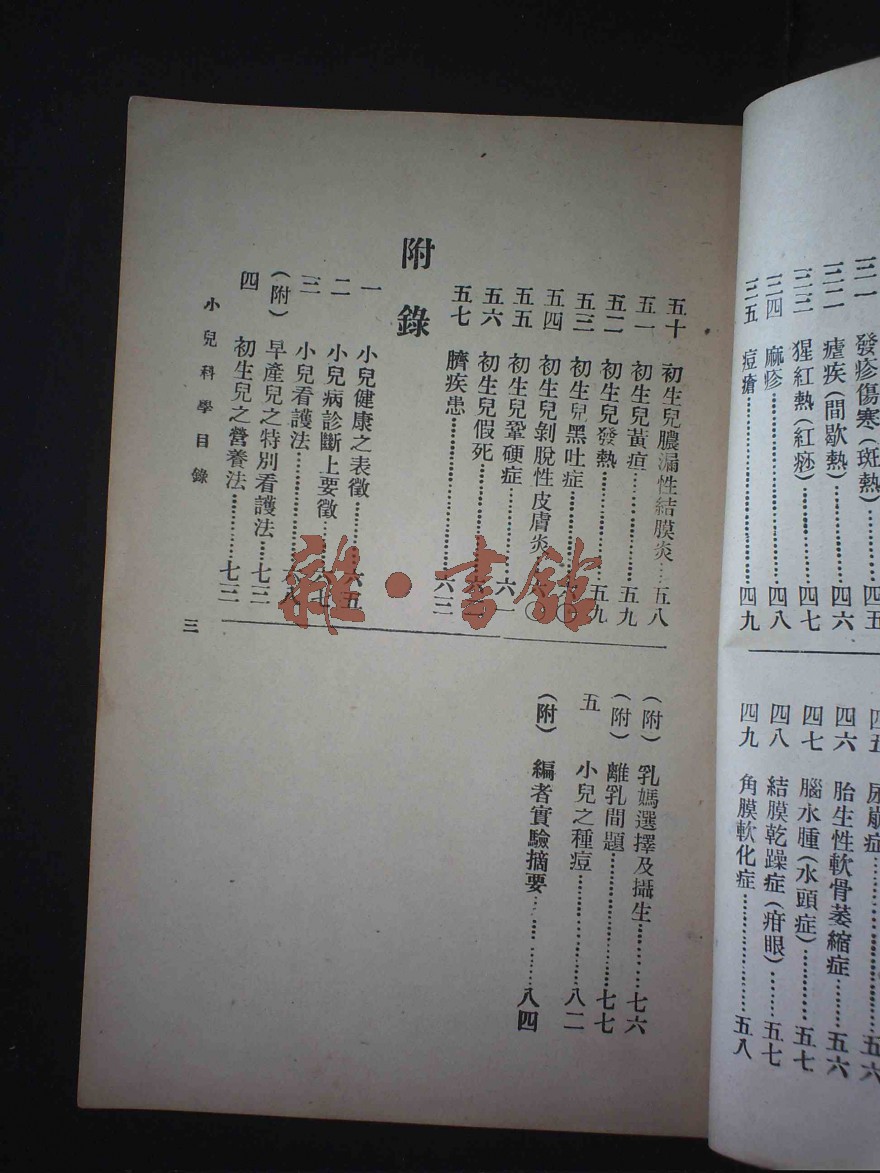 三一 發疹傷寒(斑熱)…………四五
三二 瘧疾(間歇熱)…………四六
三三 猩紅熱(紅痧)…………四七
三四 麻疹…………四八
三五 痘瘡…………四九
尿崩症…………五六
四六 胎生性軟骨萎縮症…五六
四七 腦水腫(水頭症)…………五七
四八 結膜乾躁症(疳眼)………五七
四九 角膜軟化症…………五八
五十 初生兒膿漏性結膜炎…五八
五一 初生兒黃疸…………五九
五二 初生兒發熱…………五九
五三 初生兒黑吐症…………
五四 初生兒剝脫性皮膚炎…六〇
五五 初生兒鞏硬症…………六一
五六 初生兒假死…………
五七 臍疾患…………六三
附錄
一 小兒健康之表徵…………六五
二 小兒病診斷上要徵…………六七
三 小兒看護法…………六八
(附) 早產兒之特別看護法………七三
四 初生兒之營養法…………七三
(附) 乳媽選擇及攝生…………七六
(附) 離乳問題…………七七
五 小兒之種痘…………八二
(附) 編者實驗摘要…………八四
小兒科學目錄
三
雜·書館